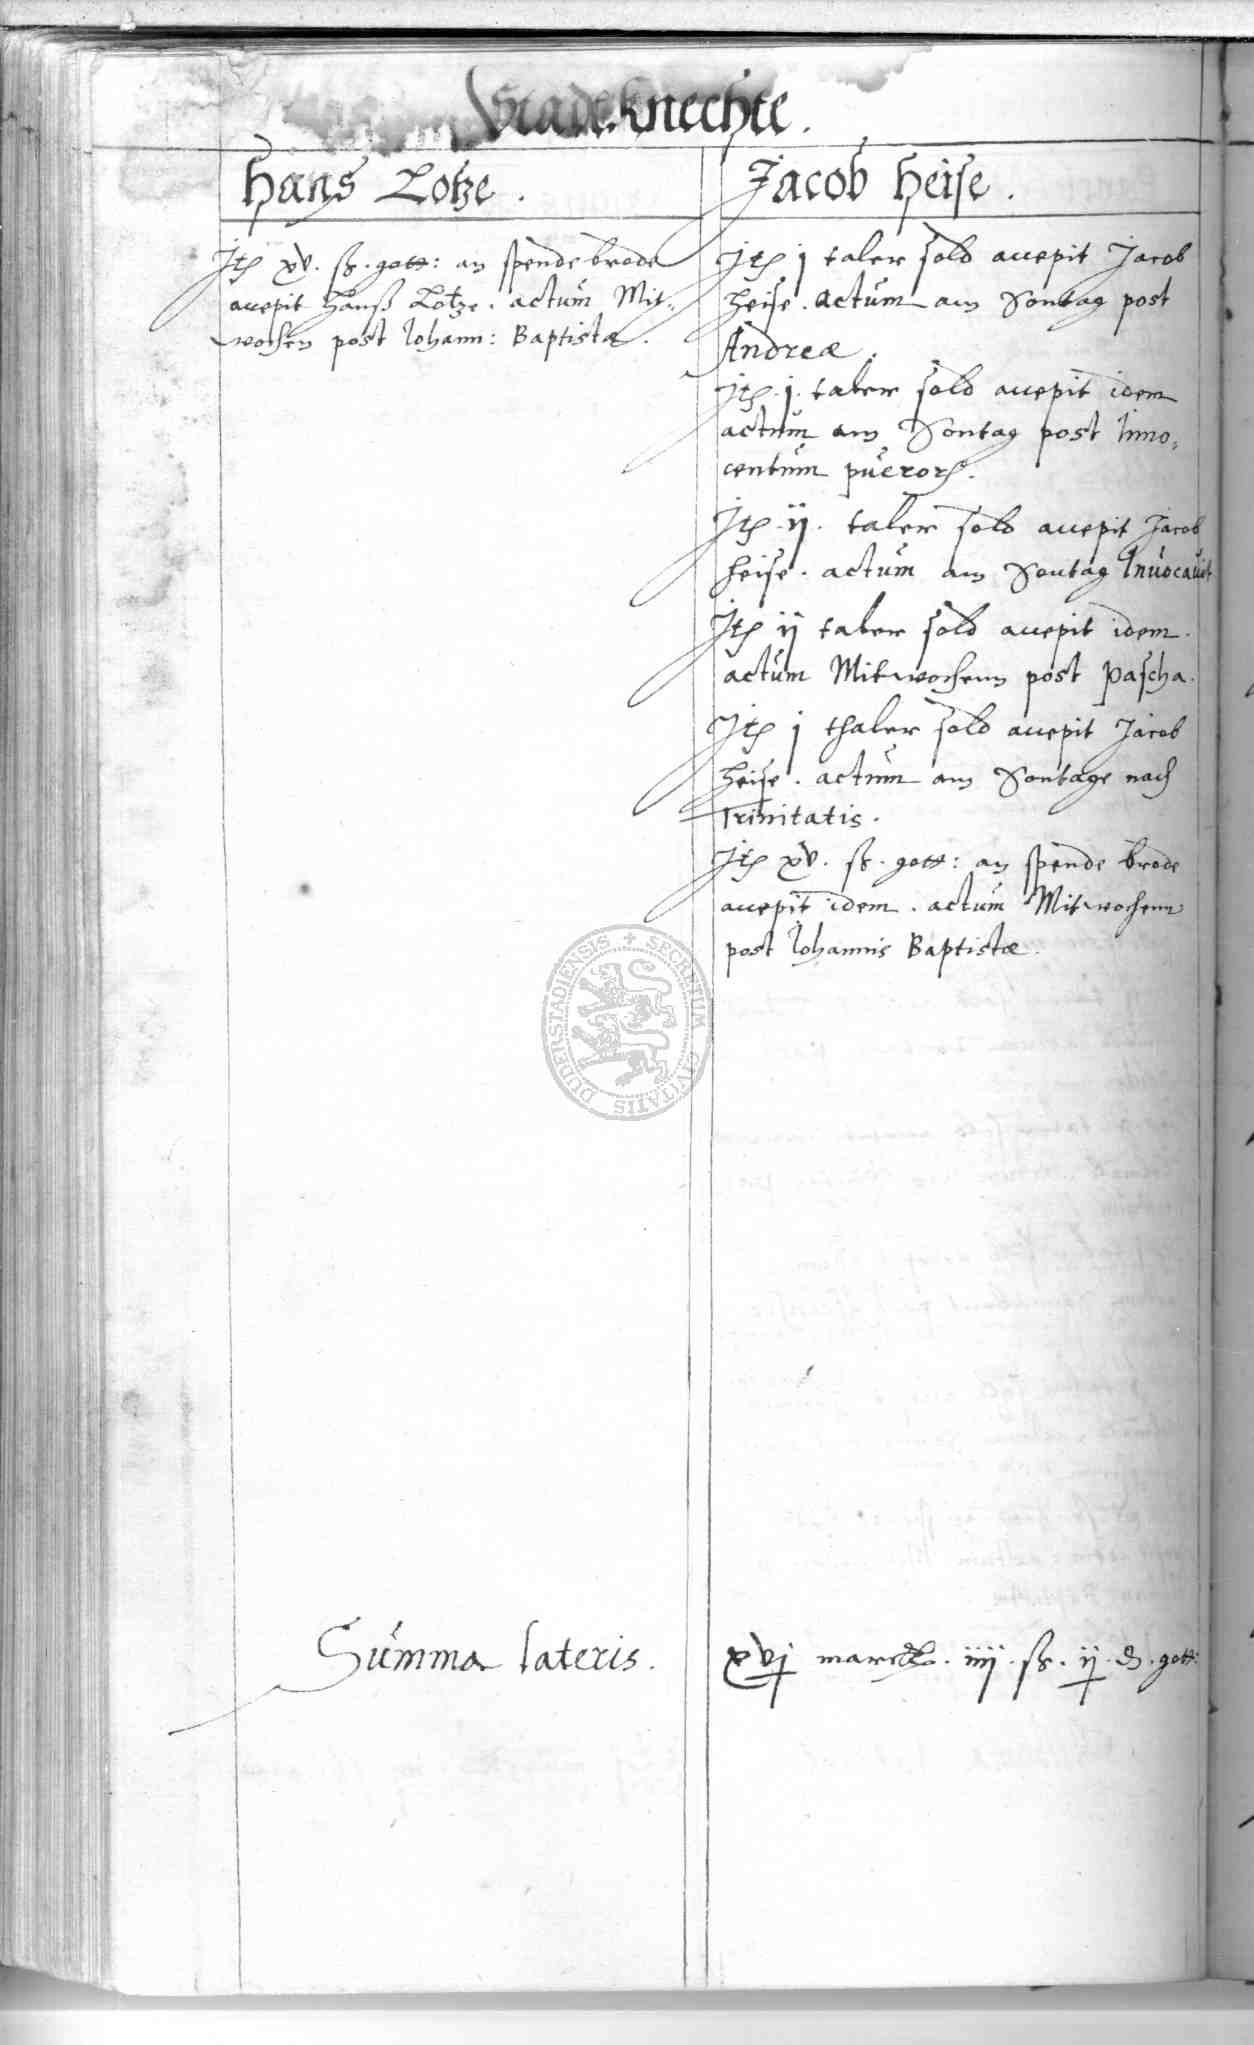 Stadtknechte.
Hans Lotze.
Jtem xv. ß. gott: an spendebrode
accepit Hanß Lotze. actum Mit-
wochen post Iohann: Baptistæ.
Jacob Heise.
Jtem j taler sold accepit Jacob
Heise. actum am Sontag post
Andreæ.
Jtem .j. taler sold accepit idem
actum am Sontag post Inno-
centum puerorum.
Jtem .ij. taler sold accepit Jacob
Heise. actum am Sontag Inuocauit
Jtem ij taler sold accepit idem.
actum Mitwochenn post Pascha.
Jtem j thaler sold accepit Jacob
Heise. actum am Sontage nach
Trinitatis.
Jtem xv. ß. gott: an spende brode
accepit idem. actum Mitwochenn
post Iohannis Baptistæ.
DUDERSTADIENSIS + SECRETUM CIVITATIS
Summa lateris.
xvj marck. iiij. ß. ij. d. gott: